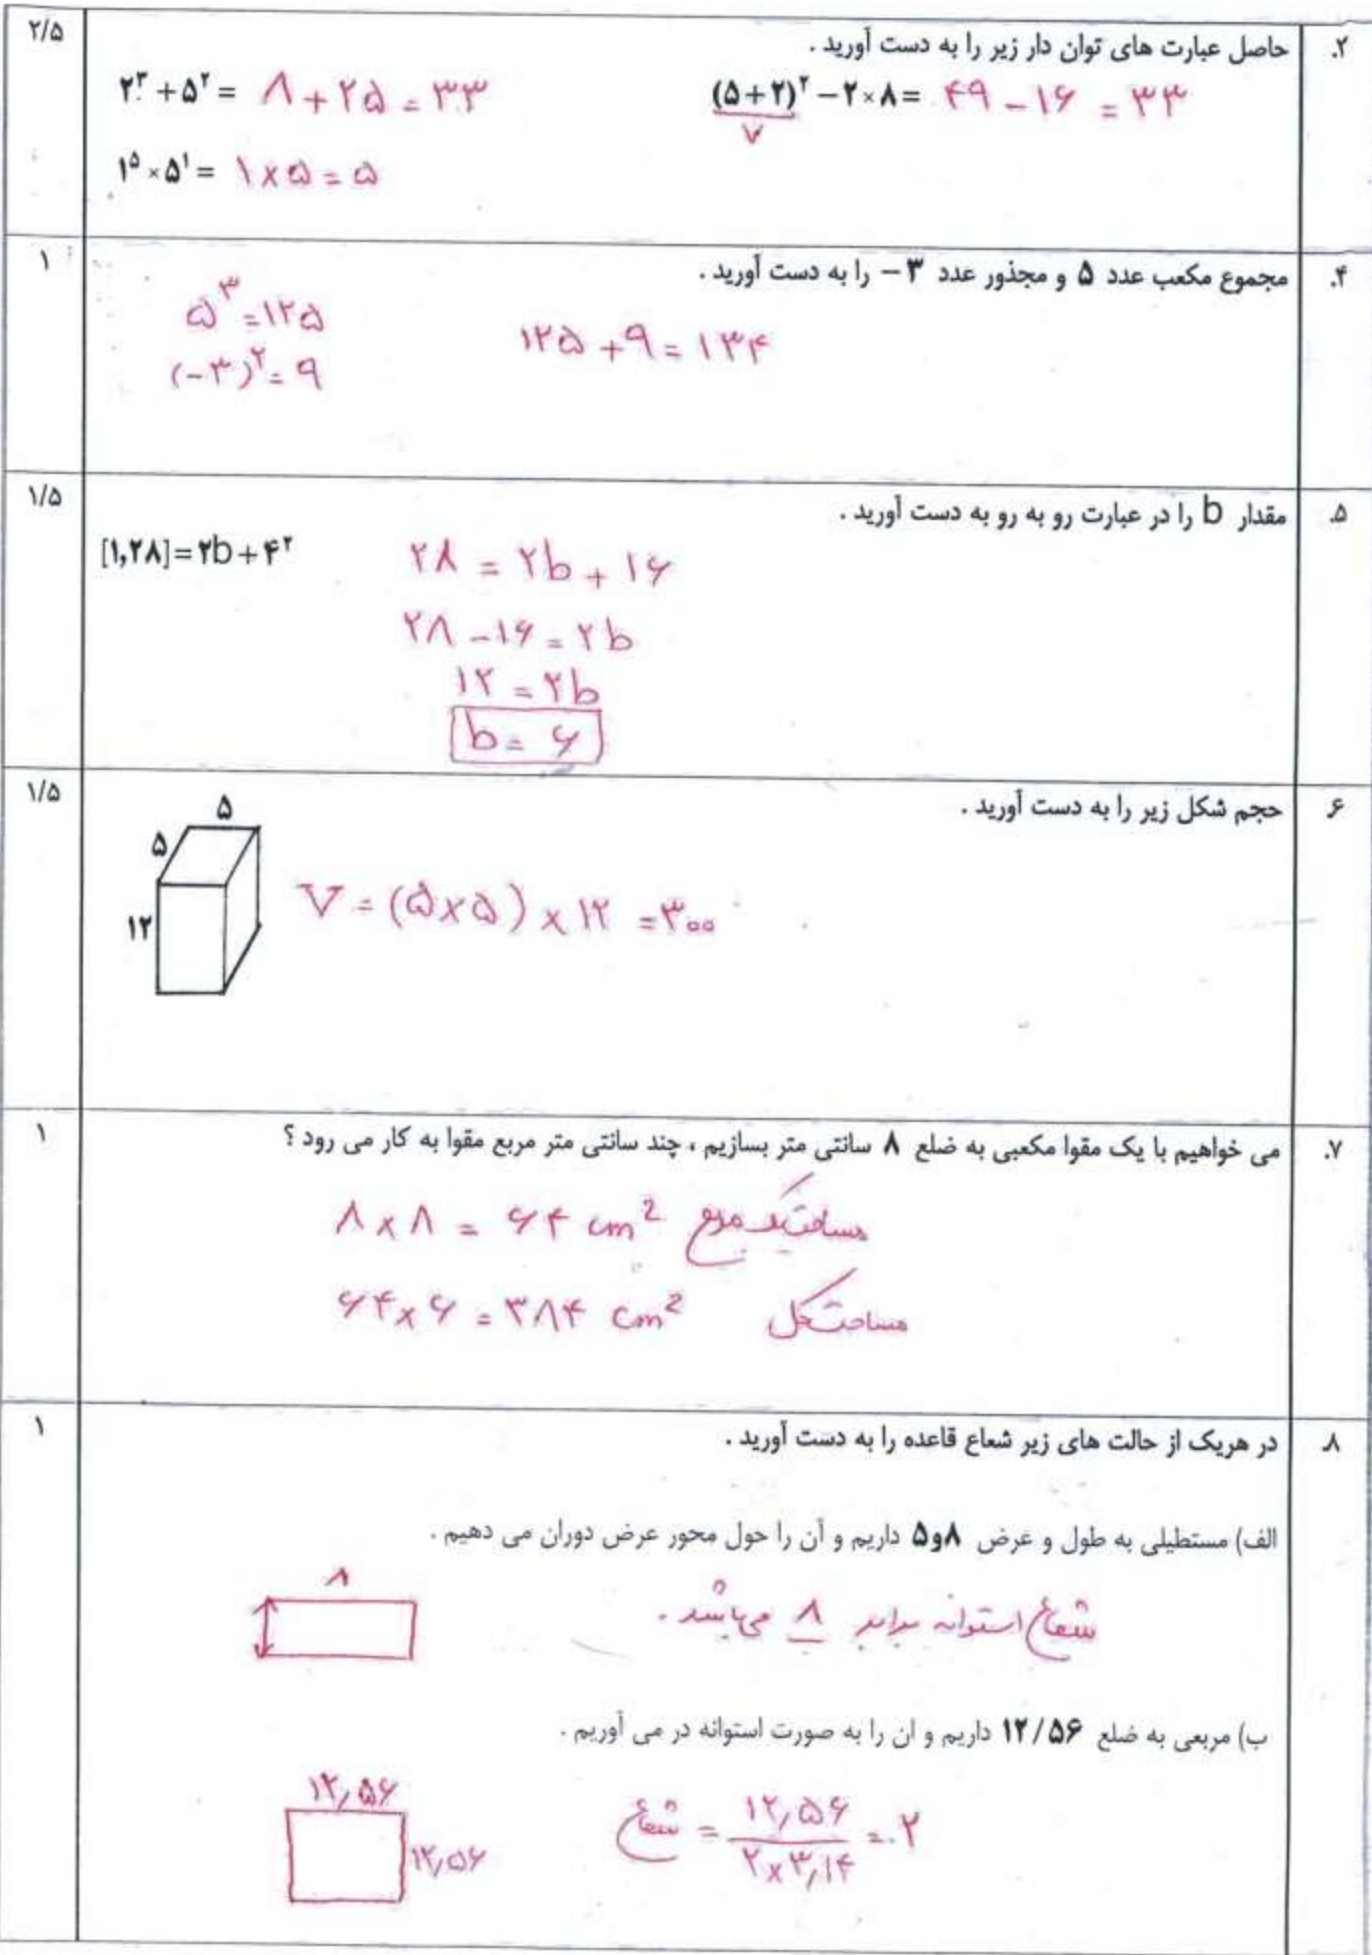 ۲. حاصل عبارت های توان دار زیر را به دست آورید . ۲/۵
(۵+۲)^۲ − ۲×۸ = ۴۹ − ۱۶ = ۳۳
۷
۲^۳ + ۵^۲ = ۸ + ۲۵ = ۳۳
۱^۵ × ۵^۱ = ۱ × ۵ = ۵
۴. مجموع مکعب عدد ۵ و مجذور عدد ۳ − را به دست آورید . ۱
۵^۳ = ۱۲۵
(−۳)^۲ = ۹
۱۲۵ + ۹ = ۱۳۴
۵. مقدار b را در عبارت رو به رو به دست آورید . ۱/۵
[۱,۲۸] = ۲b + ۴^۲
۲۸ = ۲b + ۱۶
۲۸ − ۱۶ = ۲b
۱۲ = ۲b
b = ۶
۶ حجم شکل زیر را به دست آورید . ۱/۵
۵
۵
۱۲
V = (۵×۵) × ۱۲ = ۳۰۰
۷. می خواهیم با یک مقوا مکعبی به ضلع ۸ سانتی متر بسازیم ، چند سانتی متر مربع مقوا به کار می رود ؟ ۱
۸ × ۸ = ۶۴ cm² مساحت یک مربع
۶۴ × ۶ = ۳۸۴ cm² مساحت کل
۸ در هریک از حالت های زیر شعاع قاعده را به دست آورید . ۱
الف) مستطیلی به طول و عرض ۸و۵ داریم و آن را حول محور عرض دوران می دهیم .
۸
شعاع استوانه برابر ۸ می باشد .
ب) مربعی به ضلع ۱۲/۵۶ داریم و ان را به صورت استوانه در می آوریم .
۱۲٫۵۶
۱۲٫۵۶
شعاع = ۱۲٫۵۶ / ۲×۳٫۱۴ = ۲